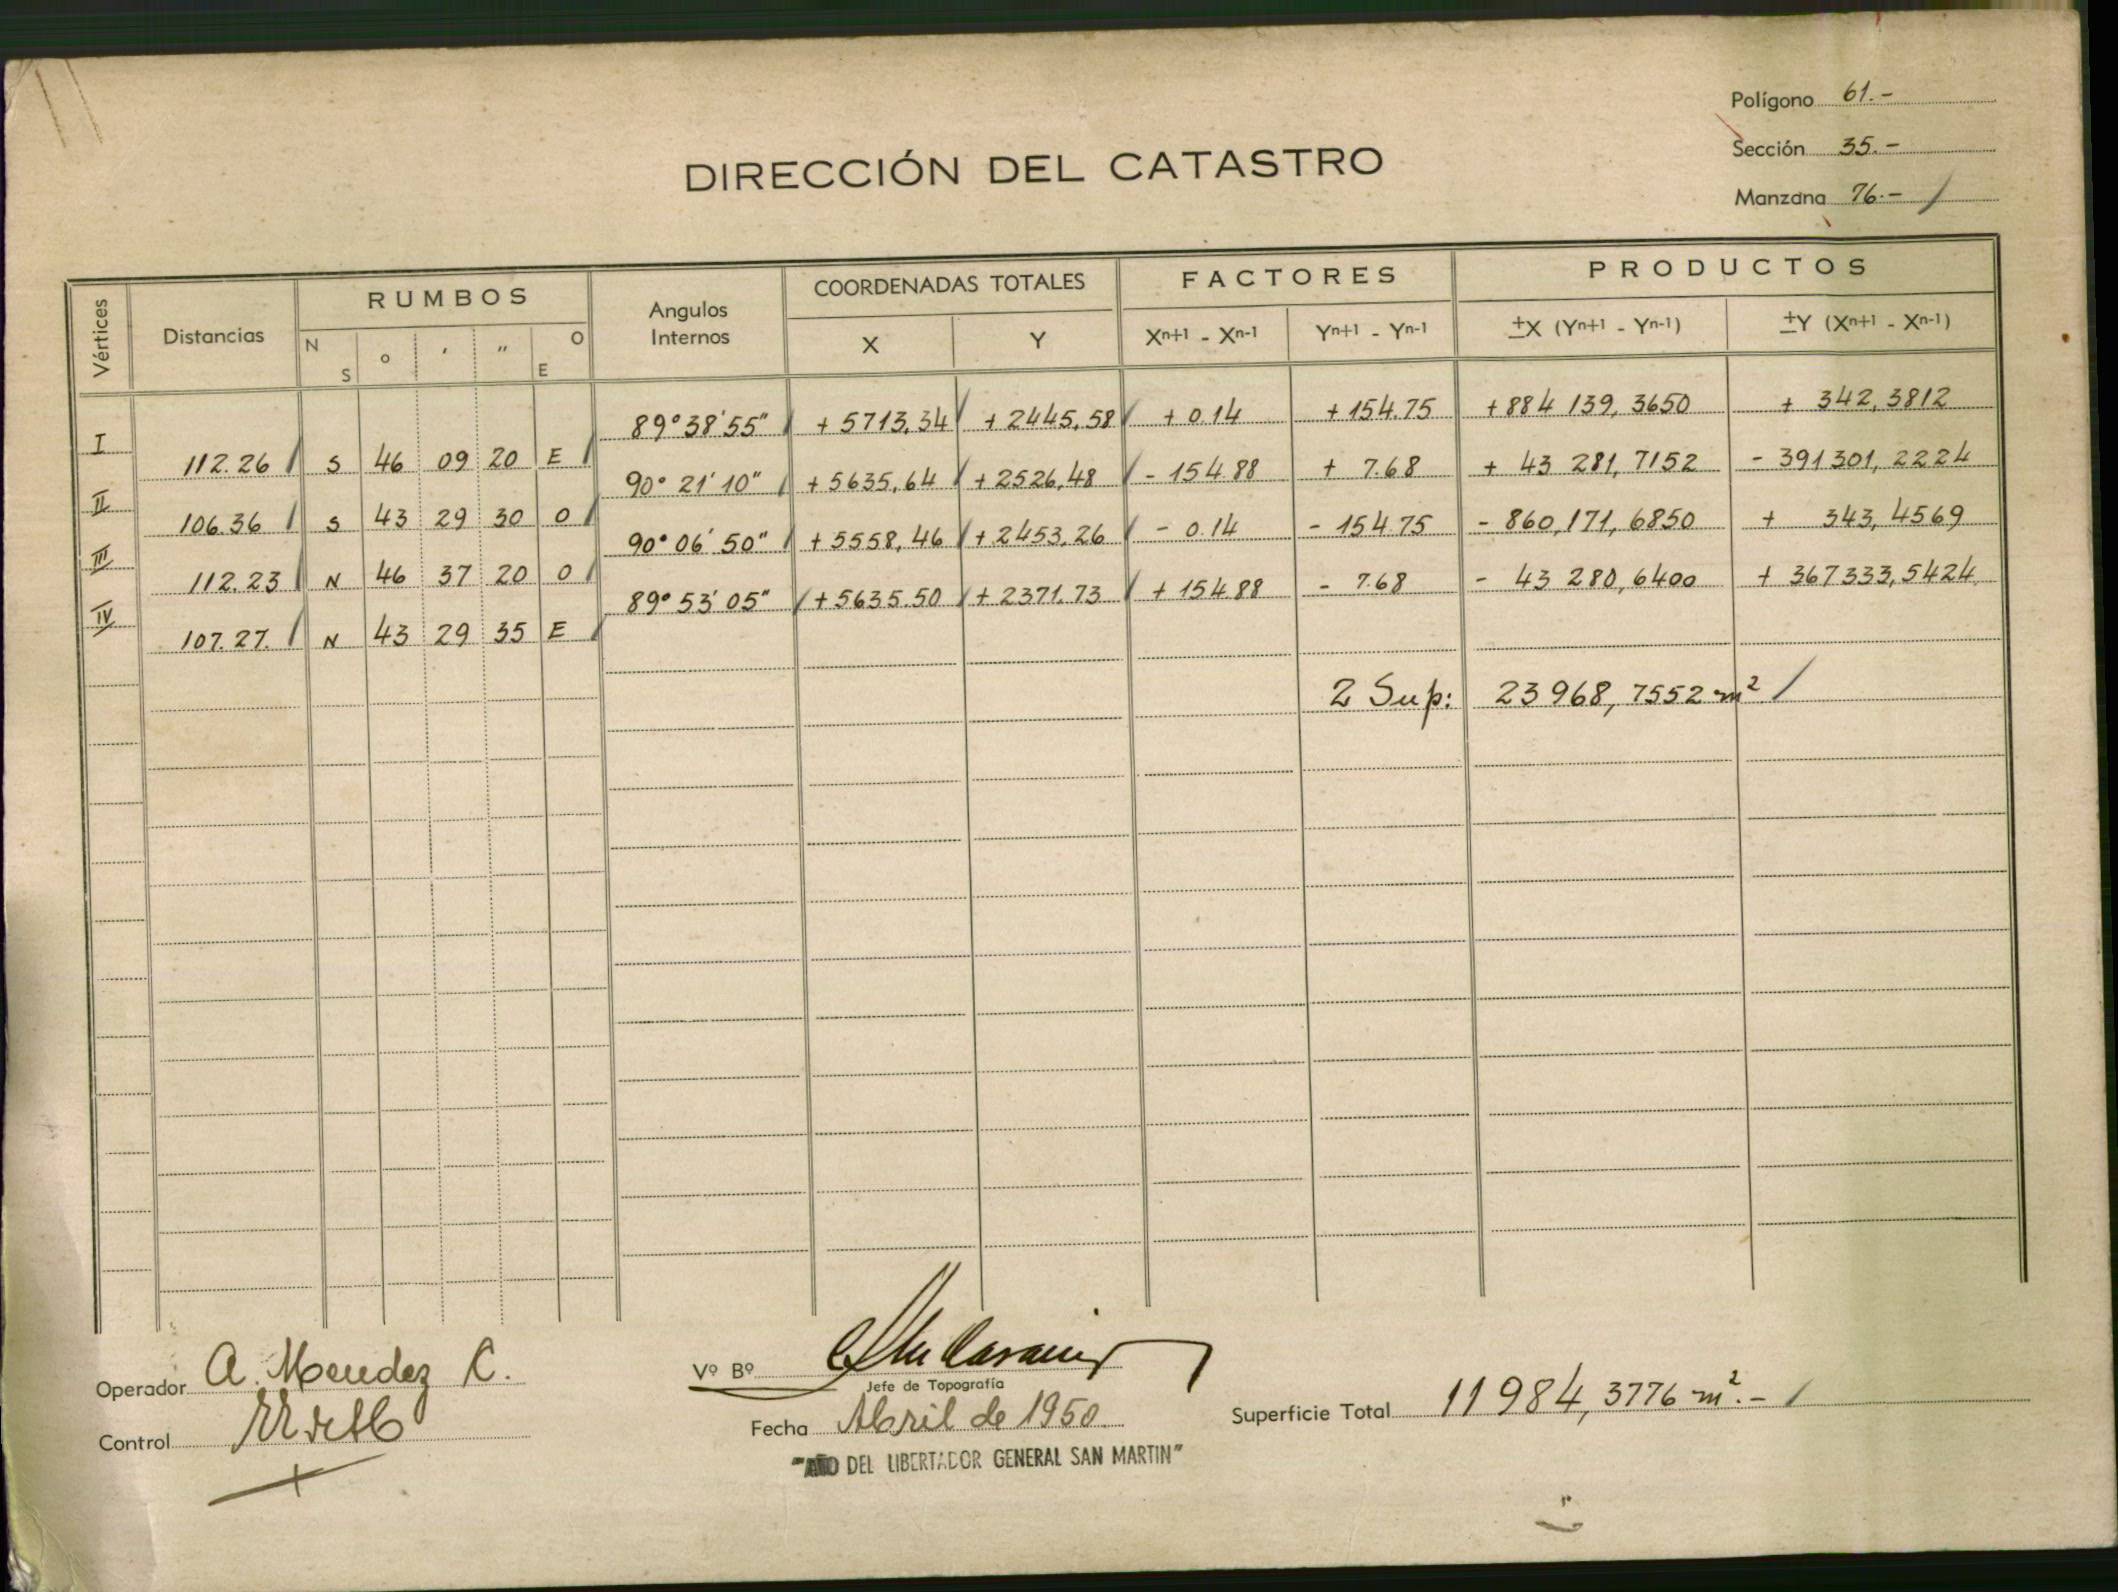 Polígono 61.-
Sección 35.-
Manzana 76.-
DIRECCIÓN DEL CATASTRO
Vértices Distancias RUMBOS Angulos Internos COORDENADAS TOTALES FACTORES PRODUCTOS
N S o ' " O E X Y Xn+1 - Xn-1 Yn+1 - Yn-1 ±X (Yn+1 - Yn-1) ±Y (Xn+1 - Xn-1)
89°38'55" + 5713,34 + 2445,58 + 0.14 + 154.75 + 884 139, 3650 + 342,3812
I
112.26 S 46 09 20 E
90° 21' 10" + 5635,64 + 2526,48 - 154.88 + 7.68 + 43 281, 7152 - 391301, 2224
II
106.36 S 43 29 30 O
90° 06' 50" + 5558,46 + 2453,26 - 0.14 - 154.75 - 860,171, 6850 + 343,4569
III
112.23 N 46 37 20 O
89° 53' 05" + 5635.50 + 2371.73 + 154.88 - 7.68 - 43 280,6400 + 367333,5424
IV
107.27. N 43 29 35 E
2 Sup: 23 968, 7552 m²
Operador A. Mendez C.
Vº Bº
Jefe de Topografía
Control
Fecha Abril de 1950
Superficie Total 11 984, 3776 m².-
"AÑO DEL LIBERTADOR GENERAL SAN MARTIN"